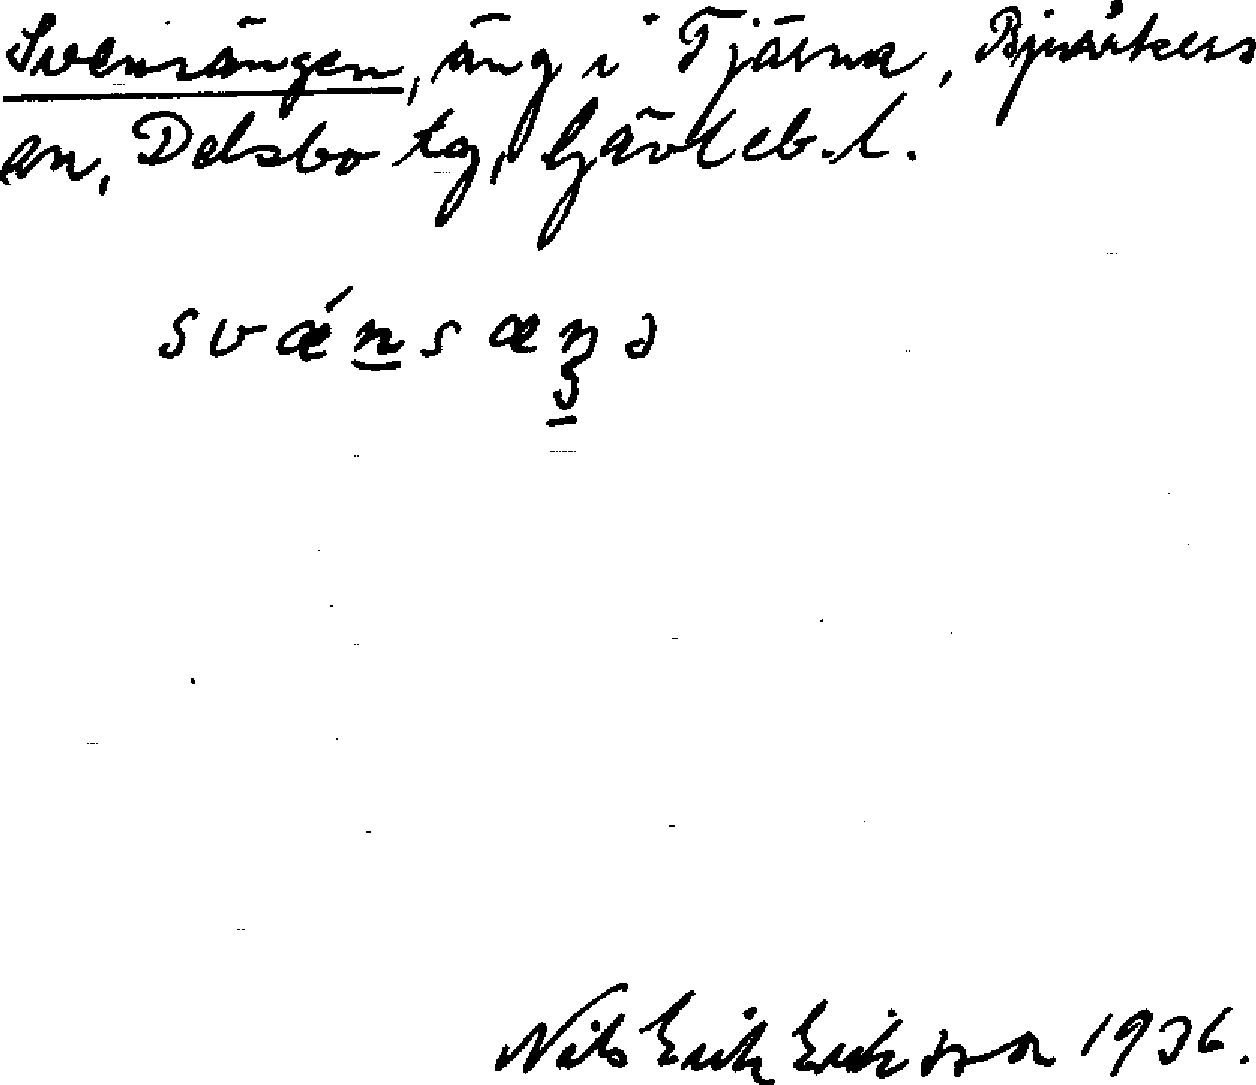 Svensängen, äng i Tjärna, Bjuråkers
sn, Delsbo tg, Gävleb. l.
svǽnsæŋə
Nils Erik Eriksson 1936.